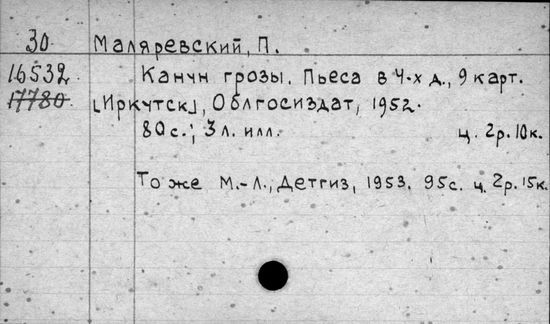 30 Маляревский, П.
16532 Канун грозы. Пьеса в 4-х д., 9 карт.
17780 [Иркутск], Облгосиздат, 1952.
80 с.; 3 л. илл. ц. 2р. 10к.
То же М.-Л., Детгиз, 1953. 95с. ц. 2р. 15к.